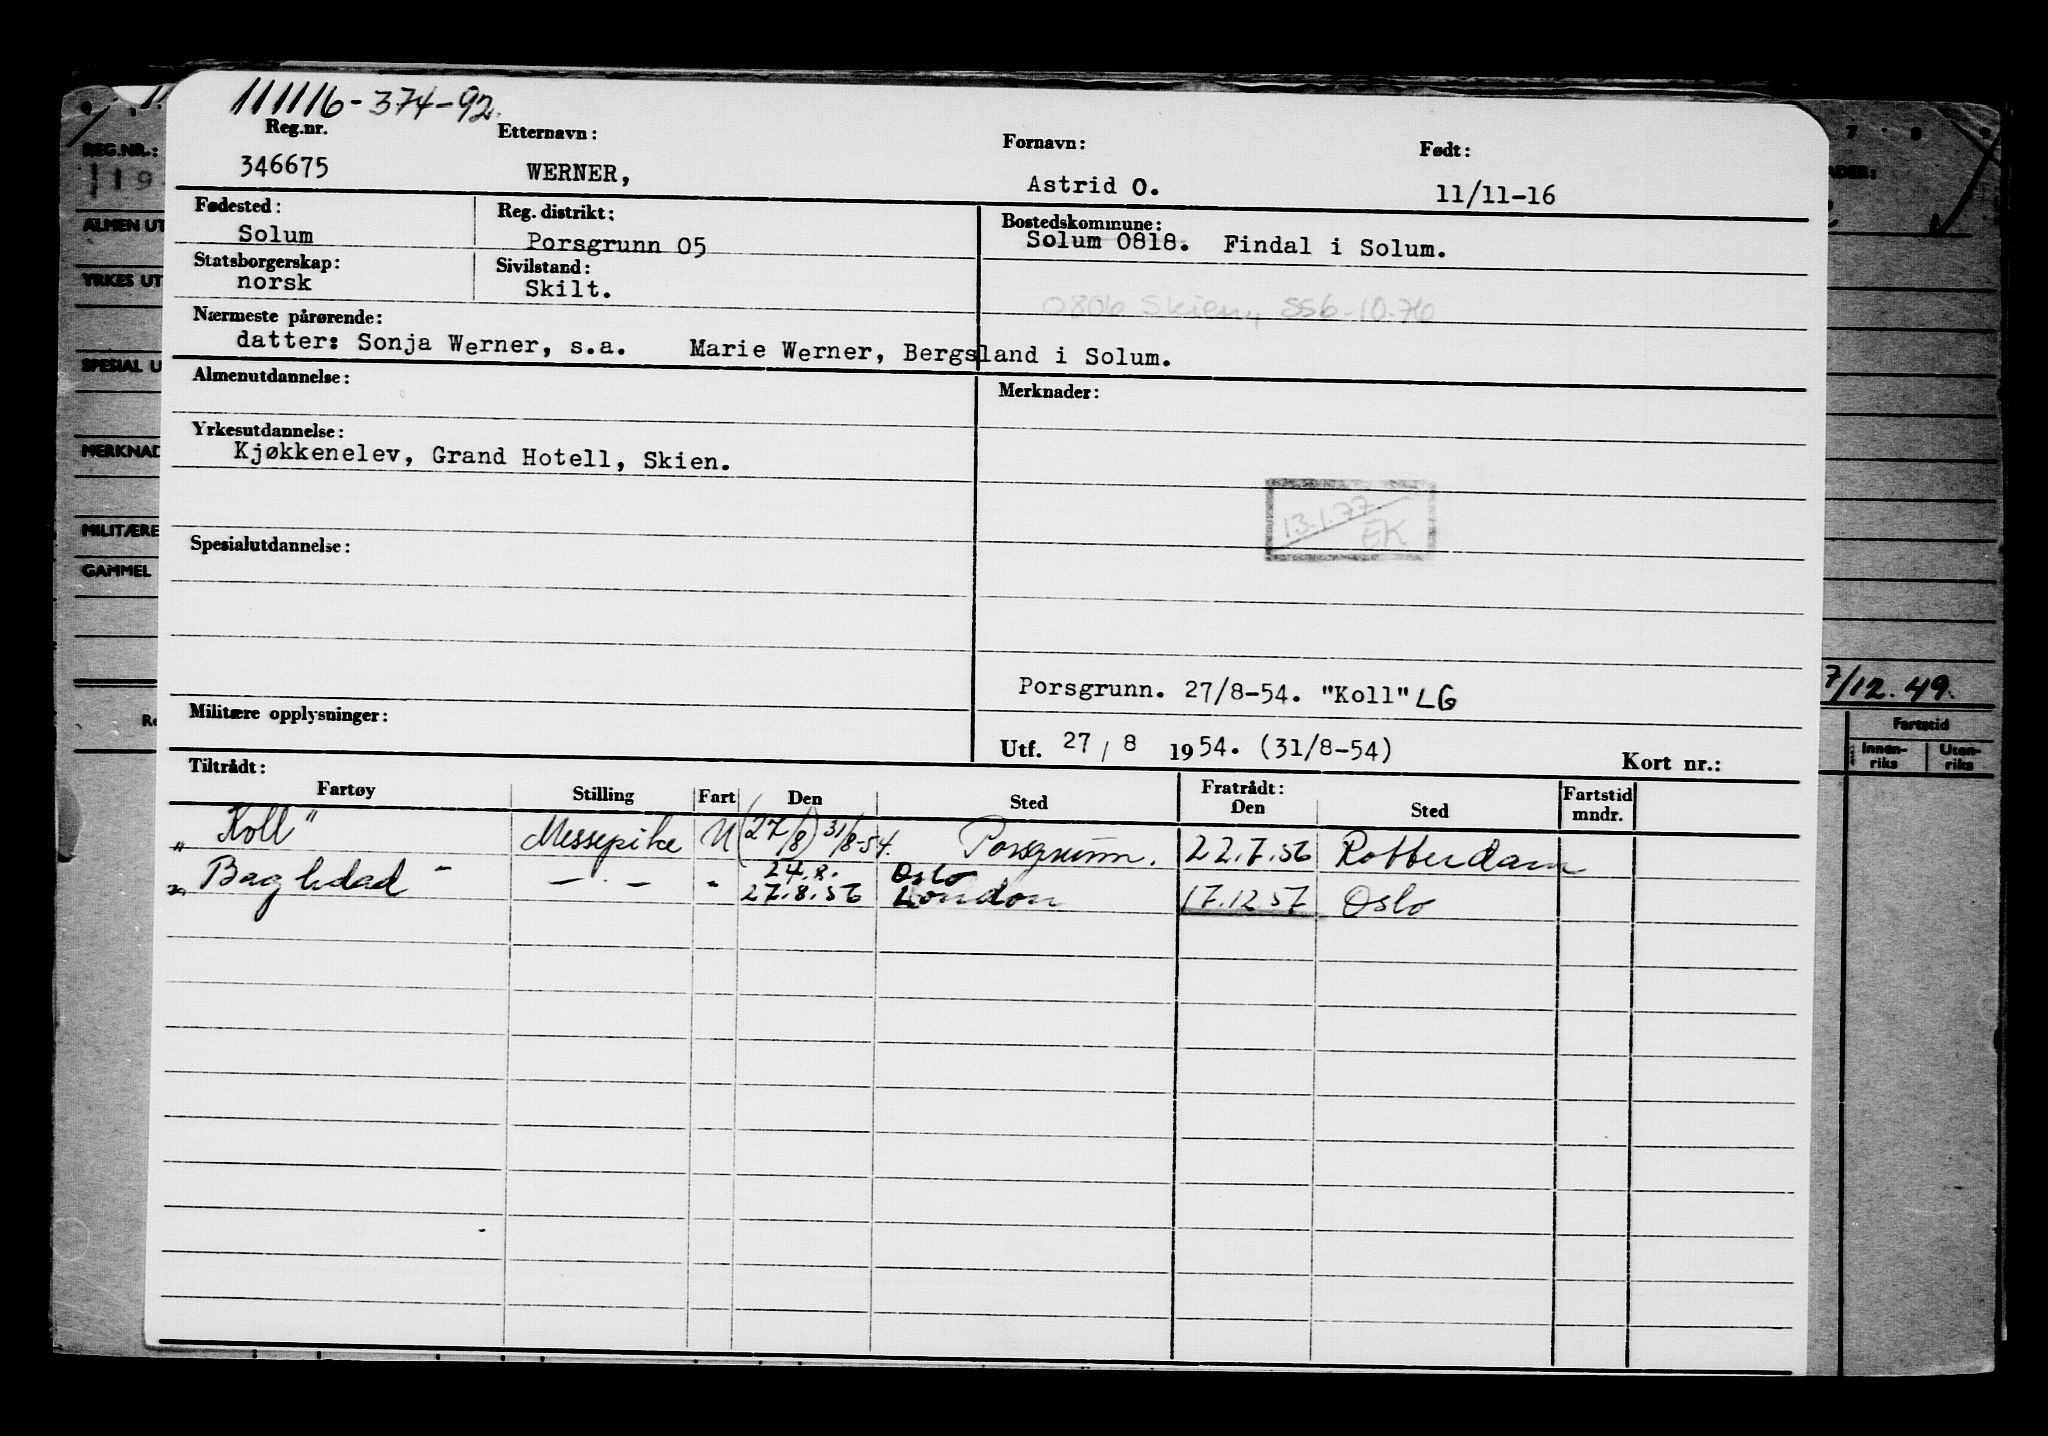 111116-374-92.
Reg.nr. Etternavn: Fornavn: Født:
346675 WERNER, Astrid O. 11/11-16
Fødested: Reg. distrikt: Bostedskommune:
Solum Porsgrunn 05 Solum 0818. Findal i Solum.
Statsborgerskap: Sivilstand:
norsk Skilt.
0806 Skien, SS6-10.76
Nærmeste pårørende:
datter: Sonja Werner, s.a. Marie Werner, Bergsland i Solum.
Almenutdannelse: Merknader:
Yrkesutdannelse:
Kjøkkenelev, Grand Hotell, Skien.
13.1.77
EK
Spesialutdannelse:
Porsgrunn. 27/8-54. "Koll" LG
Militære opplysninger:
Utf. 27/8 1954. (31/8-54) Kort nr.:
Tiltrådt: Fratrådt:
Fartøy Stilling Fart Den Sted Den Sted Fartstid mndr.
"Koll" Messepike U (27/8) 31/8-54. Porsgrunn. 22.7.56 Rotterdam
24.8. Oslo
"Baghdad" — " — " 27.8.56 London 17.12 57 Oslo
REG.NR.:
119
ALMEN UT
YRKES UT
SPESIAL U
MERKNAD
MILITÆRE
GAMMEL
7 8 9
ADER:
7/12.49.
Fartstid
Innen-riks Uten-riks